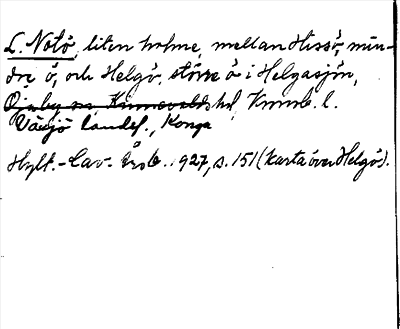 L. Notö, liten holme, mellan Hissö, min-
dre ö, och Helgö, större ö i Helgasjön,
Öjaby sn Kinnevalds hd, Kronob. l.
Växjö landsf., Konga
Hylt.-Cav. Årsb. 1927, s. 151 (karta över Helgö).